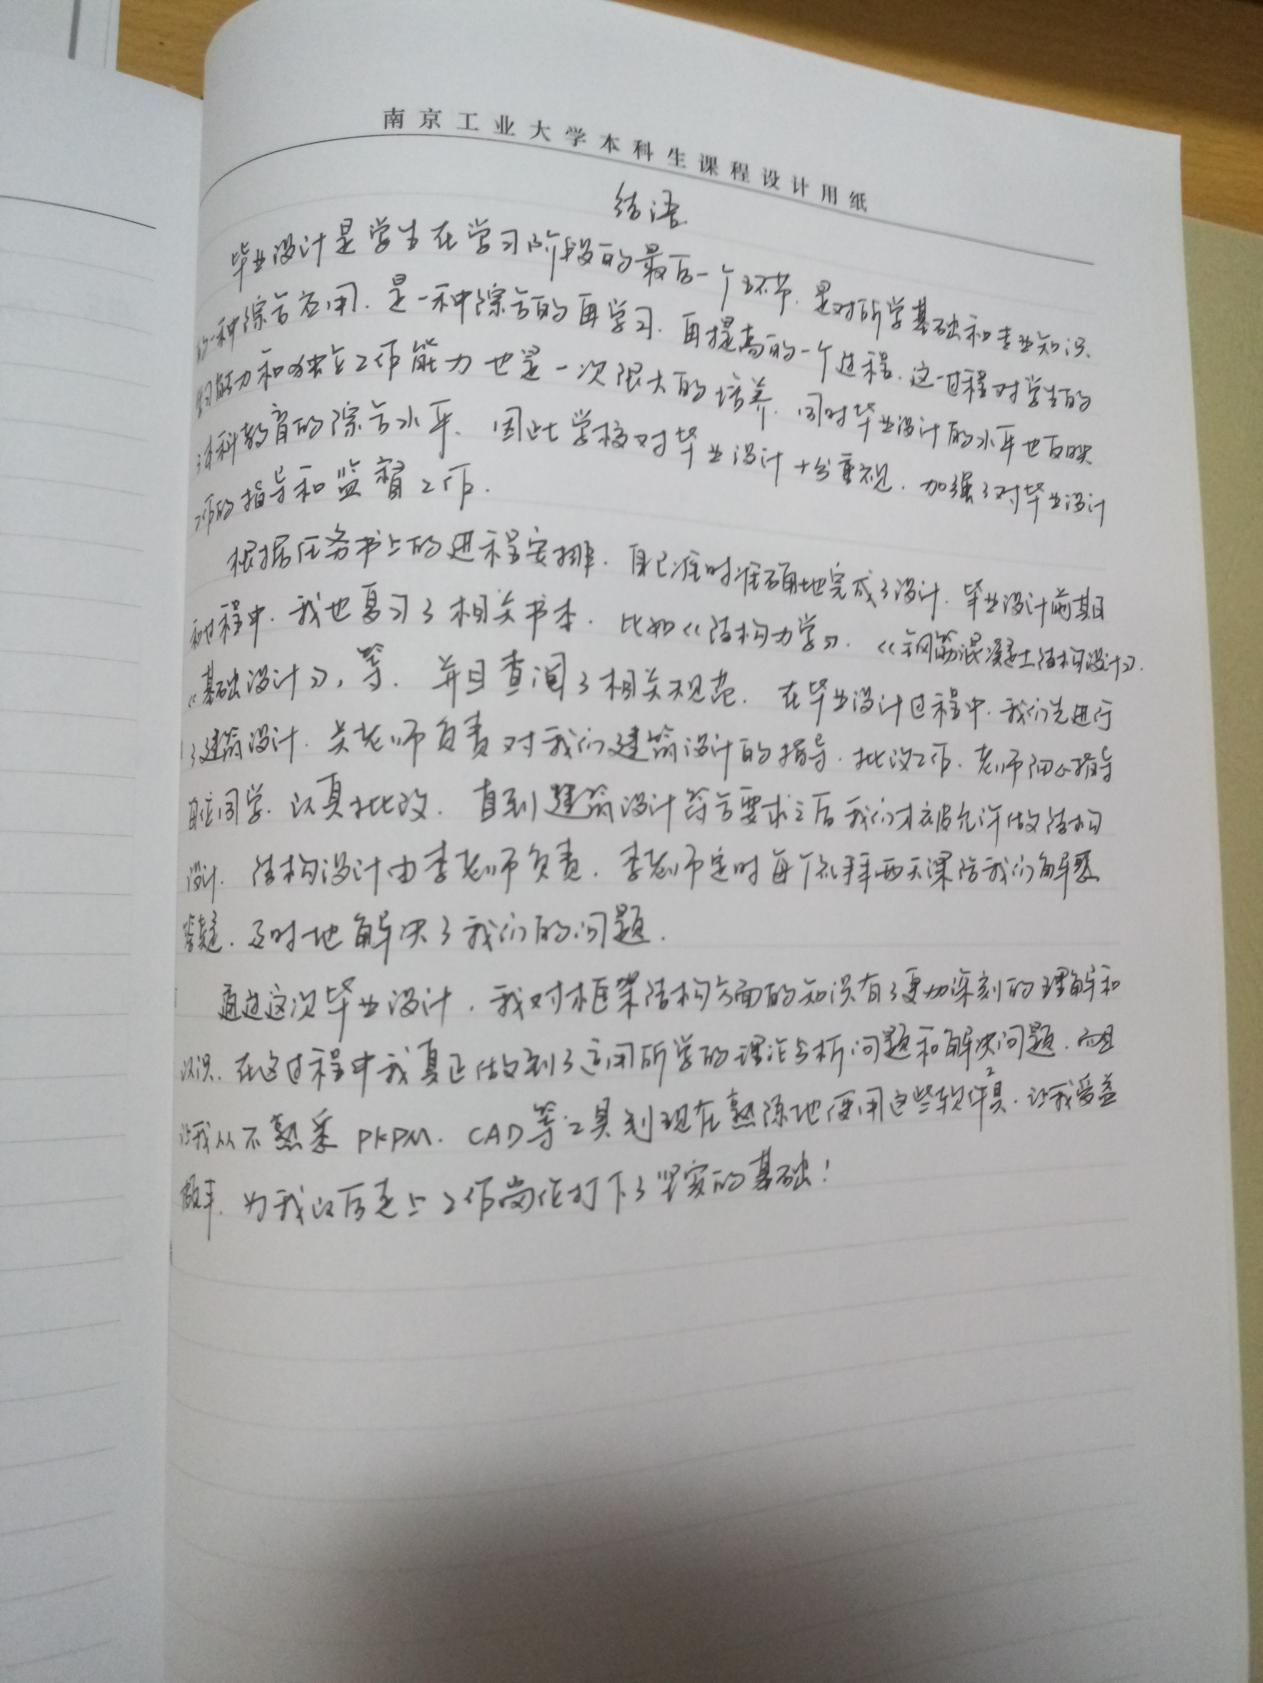 南京工业大学本科生课程设计用纸
结语
毕业设计是学生在学习阶段的最后一个环节,是对所学基础和专业知识
的一种综合应用,是一种综合的再学习、再提高的一个过程,这一过程对学生的
学习能力和独立工作能力也是一次很大的培养,同时毕业设计的水平也反映
本科教育的综合水平,因此学校对毕业设计十分重视,加强了对毕业设计
工作的指导和监督工作.
根据任务书上的进程安排,自己准时准确地完成了设计,毕业设计前期
和过程中,我也复习了相关书本,比如《结构力学》、《钢筋混凝土结构设计》、
《基础设计》,等,并且查阅了相关规范,在毕业设计过程中,我们先进行
了建筑设计,关老师负责对我们建筑设计的指导、批改工作,老师细心指导
每位同学,认真批改,直到建筑设计符合要求之后我们才被允许做结构
设计,结构设计由李老师负责,李老师定时每个礼拜两天课给我们解惑
答疑,及时地解决了我们的问题.
通过这次毕业设计,我对框架结构方面的知识有了更加深刻的理解和
认识,在这过程中我真正做到了运用所学的理论分析问题和解决问题,而且
让我从不熟悉PKPM、CAD等工具到现在熟练地使用这些软件工具,让我受益
颇丰,为我以后走上工作岗位打下了坚实的基础!